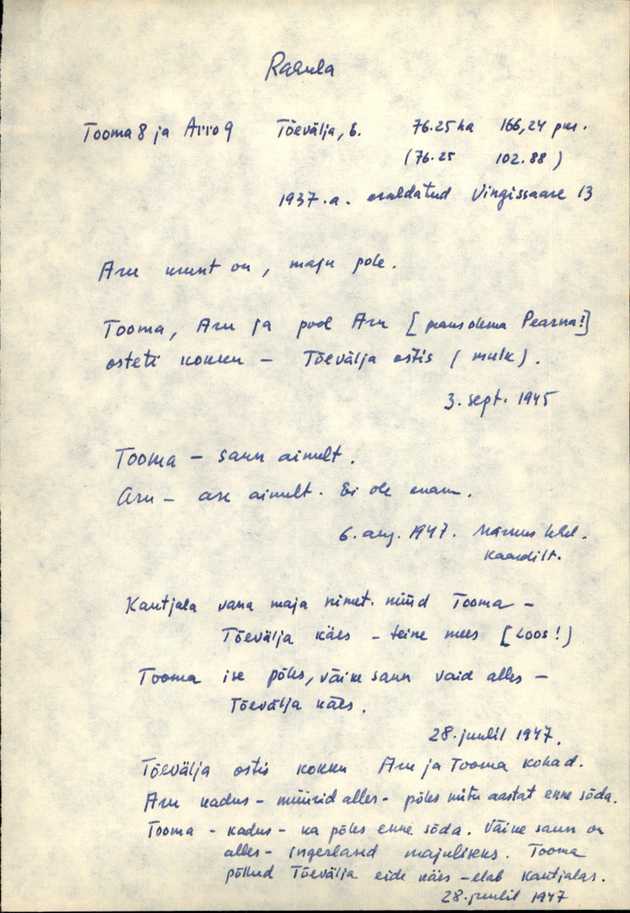 Rabula
Tooma 8 ja Arro 9 Tõevälja, E. 76.25 ha 166,24 pm.
(76.25 102.88)
1937.a. eraldatud Vingissaare 13
Aru munt on, maju pole.
Tooma, Aru ja pool Aru [peaks olema Pearna!]
osteti kokku – Tõevälja ostis (mulk).
3. sept. 1945
Tooma – saun ainult.
Aru – ase ainult. Ei ole enam.
6. aug. 1947. Märkus
kaardilt.
Kautjala vana maja nimet. nüüd Tooma –
Tõevälja käes – teine mees [Loos!)
Tooma ise põles, väike saun vaid alles –
Tõevälja käes.
28. juulil 1947.
Tõevälja ostis kokku Aru ja Tooma kohad.
Aru kadus – müürid alles – põles mitu aastat enne sõda.
Tooma – kadus – ka põles enne sõda. Väike saun on
alles – ingerlased majuliseks. Tooma
põllud Tõevälja eide käes – elab Kautjalas.
28. juulil 1947